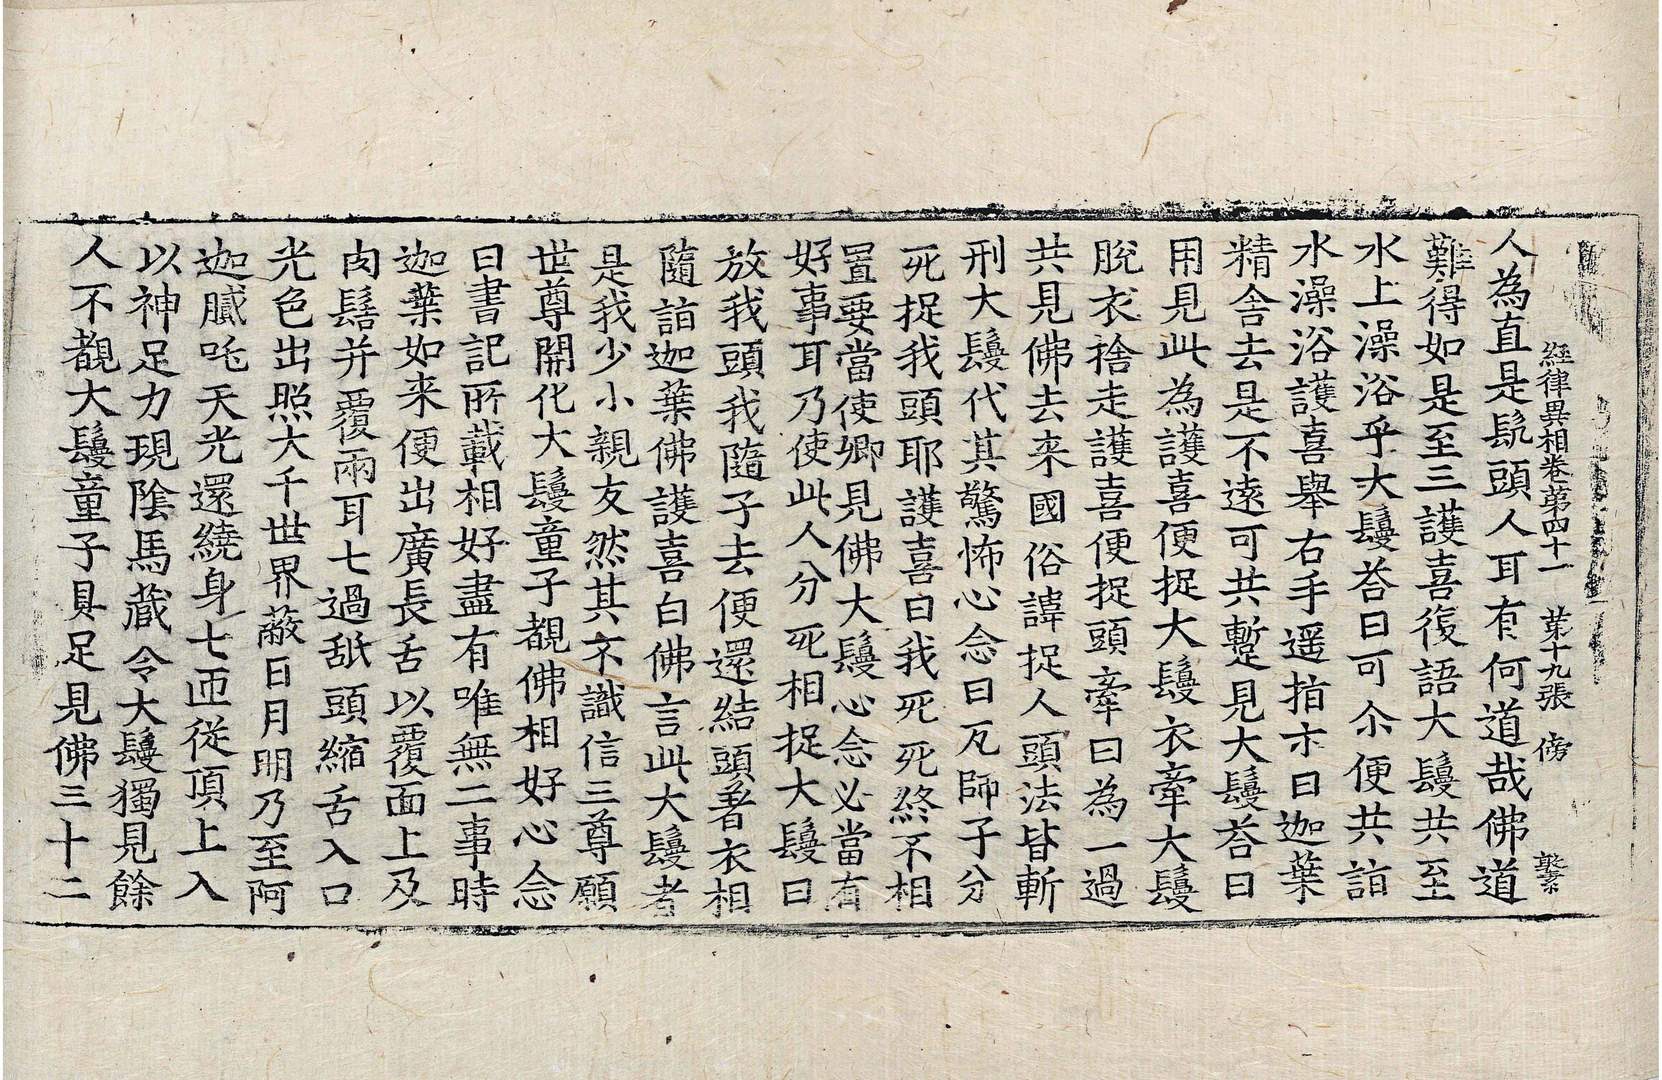 経律異相卷第四十一 苐十九張 傍
人為直是髡頭人耳有何道哉佛道
難得如是至三護喜復語大鬘共至
水上澡浴乎大鬘荅曰可尒便共詣
水澡浴護喜舉右手遥指示曰迦葉
精舍去是不逺可共蹔見大鬘荅曰
用見此為護喜便捉大鬘衣牽大鬘
脫衣捨走護喜便捉頭牽曰為一過
共見佛去来國俗諱捉人頭法皆斬
刑大鬘代其驚怖心念曰瓦師子分
死捉我頭耶護喜曰我死死終不相
置要當使卿見佛大鬘心念必當有
好事耳乃使此人分死相捉大鬘曰
放我頭我隨子去便還結頭著衣相
隨詣迦葉佛護喜白佛言此大鬘者
是我少小親友然其不識信三尊願
世尊開化大鬘童子覩佛相好心念
曰書記所載相好盡有唯無二事時
迦葉如来便出廣長舌以覆面上及
肉髻并覆兩耳七過舐頭縮舌入口
光色出照大千世界蔽日月明乃至阿
迦膩吒天光還繞身七匝従頂上入
以神足力現陰馬藏令大鬘獨見餘
人不覩大鬘童子具足見佛三十二